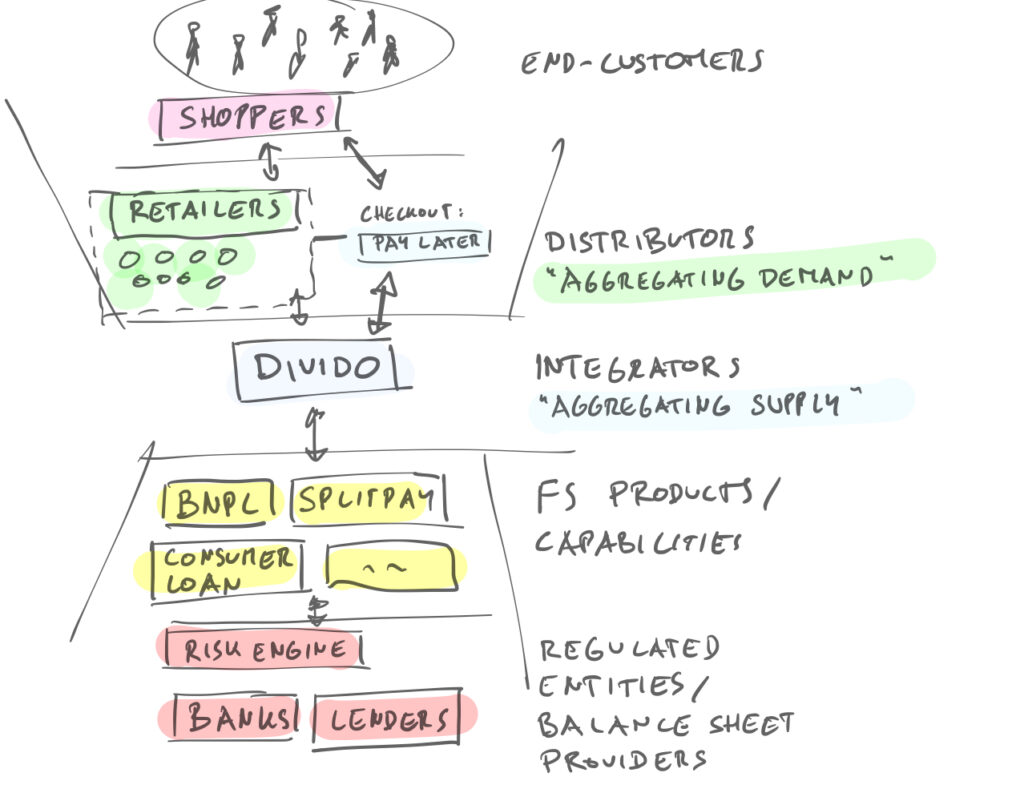 END-CUSTOMERS
SHOPPERS
RETAILERS
CHECKOUT:
PAY LATER
DISTRIBUTORS
"AGGREGATING DEMAND"
DIVIDO
INTEGRATORS
"AGGREGATING SUPPLY"
BNPL
SPLITPAY
FS PRODUCTS/
CAPABILITIES
CONSUMER
LOAN
~ ~
RISK ENGINE
REGULATED
ENTITIES/
BANKS
LENDERS
BALANCE SHEET
PROVIDERS